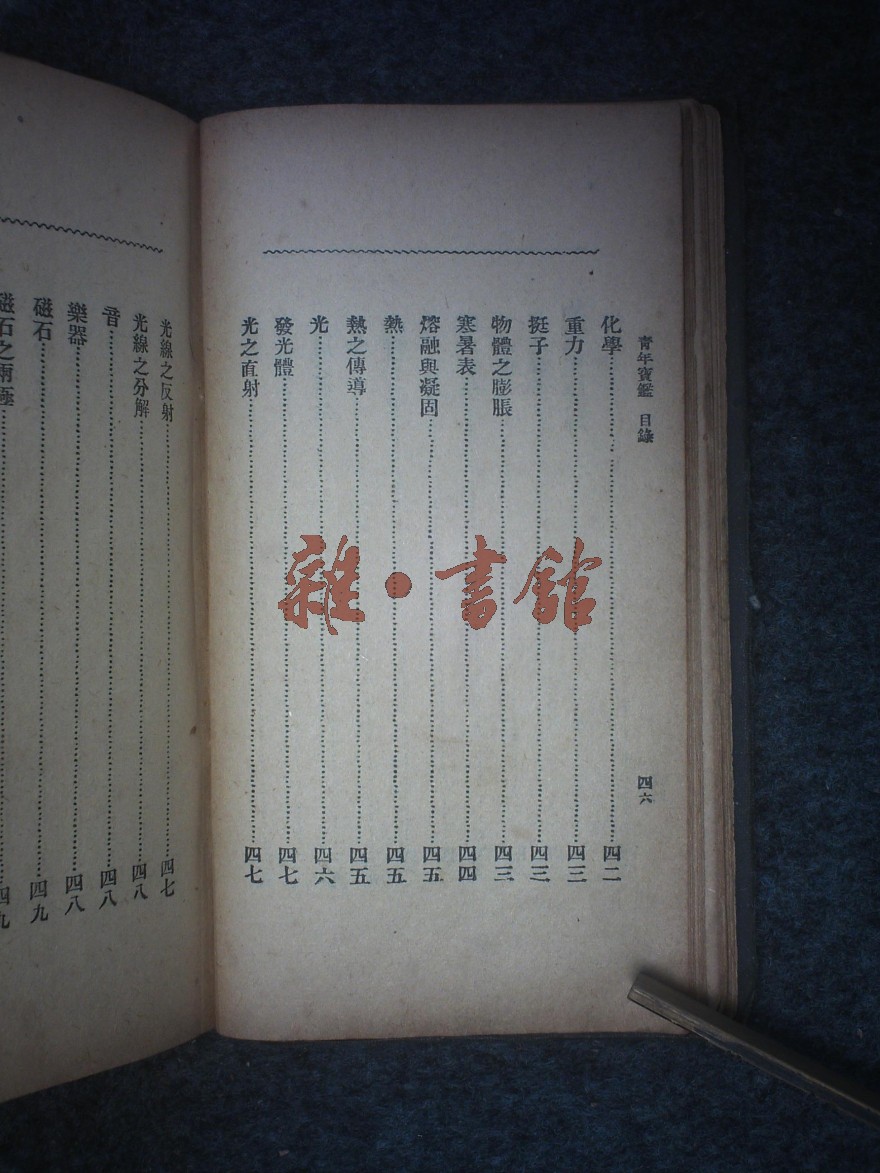 青年寶鑑　目錄　四六
化學……四二
重力……四三
挺子……四三
物體之膨脹……四三
寒暑表……四四
熔融與凝固……四五
熱……四五
熱之傳導……四五
光……四六
發光體……四七
光之直射……四七
光線之反射……四七
光線之分解……四八
音……四八
樂器……四八
磁石……四九
磁石之兩極……四九
雜・書館